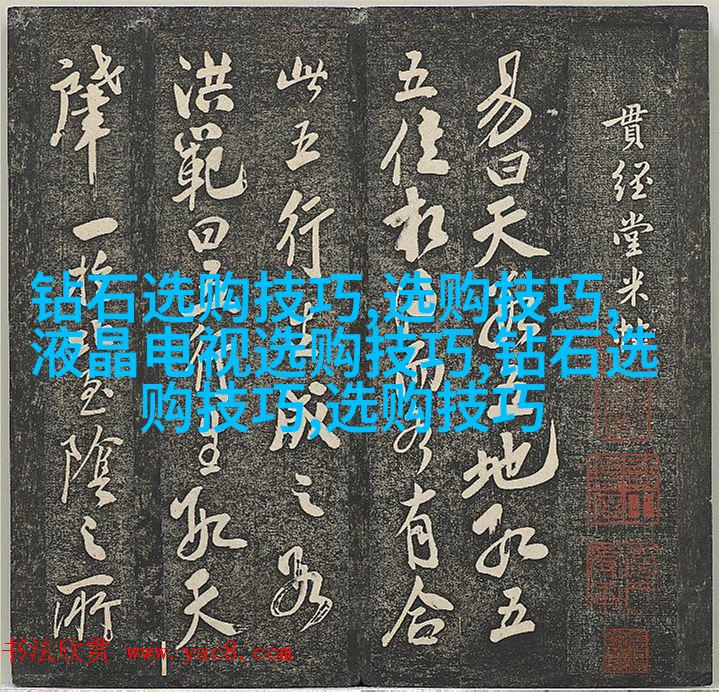 貫經堂米
易曰天數五地數五
五位相得而各有合
此五行生成之數
洪範曰五行生數天
一 至陰之所
钻石选购技巧,选购技巧,
液晶电视选购技巧,钻石选
购技巧,选购技巧
书法欣赏 www.yac8.com